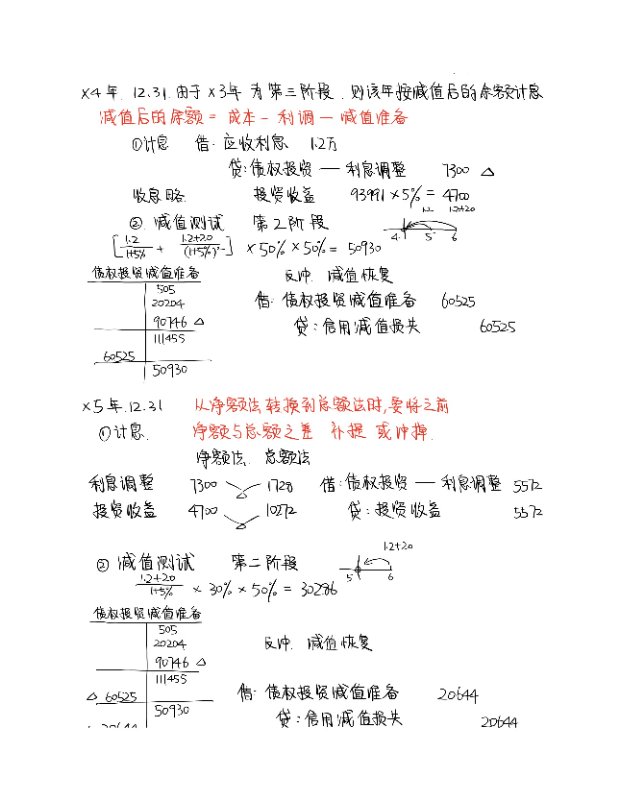 X4年.12.31.由于X3年为第三阶段.则该年按减值后的余额计息
减值后的余额 = 成本 - 利调 - 减值准备
①计息 借:应收利息 1.2万
贷:债权投资 — 利息调整 7300 △
收息略. 投资收益 93991×5% = 4700
② 减值测试 第2阶段
1.2 1.2+20
4 5 6
[1.2/1+5% + 1.2+20/(1+5%)²] × 50% × 50% = 50930
债权投资减值准备 反冲. 减值恢复
505
20204
借:债权投资减值准备 60525
90746 △
贷:信用减值损失 60525
111455
60525
50930
X5年.12.31 从净额法转换到总额法时,要将之前
①计息. 净额与总额之差 补提 或冲掉.
净额法. 总额法
利息调整 7300 1728 借:债权投资 — 利息调整 5572
投资收益 4700 10272 贷:投资收益 5572
② 减值测试 第二阶段
1.2+20
5 6
1.2+20/1+5% × 30% × 50% = 30286
债权投资减值准备
505
20204
反冲. 减值恢复
90746 △
111455
△ 60525
借:债权投资减值准备 20644
50930
贷:信用减值损失 20644
20644